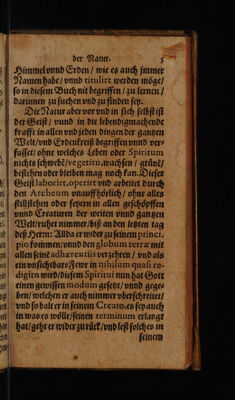 der Natur. 5
Himmel vnnd Erden / wie es auch jmmer
Namen habe / vnnd titulirt werden möge /
so in diesem Buch nit begriffen / zu lernen /
darinnen zu suchen vnd zu finden sey.
Die Natur aber vor vnd in sich selbst ist
der Geist / vnnd in die lebendigmachende
Krafft in allen vnd jeden dingen der gantzen
Welt / vnd Erdenkreiß begriffen vnnd ver-
fasset / ohne welches Leben oder Spiritum
nichts schwebē / vegetirn, wachsen / grünē /
bestehen oder bleiben mag noch kan. Dieser
Geist laborirt, operirt vnd arbeitet durch
den Archeum vnauffhörlich / ohne alles
stillstehen oder feyern in allen geschöpffen
vnnd Creaturen der weiten vnnd gantzen
Welt / ruhet nimmer / biß an den letzten tag
deß Herrn: Allda er wider zu seinem princi-
pio kommen / vnnd den globum terræ mit
allen seinē adhærentiis verzehren / vnd als
ein vnsichtbars Fewr in nihilum quasi re-
digirn wird / diesem Spiritui nun hat Gott
einen gewissen modum gesetzt / vnnd gege-
ben / welchen er auch nimmer vberschreitet /
vnd so balt er in seinem Creato, es sey auch
in was es wölle / seinen terminum erlangt
hat / geht er wider zu rück / vnd lest solches in
seinem